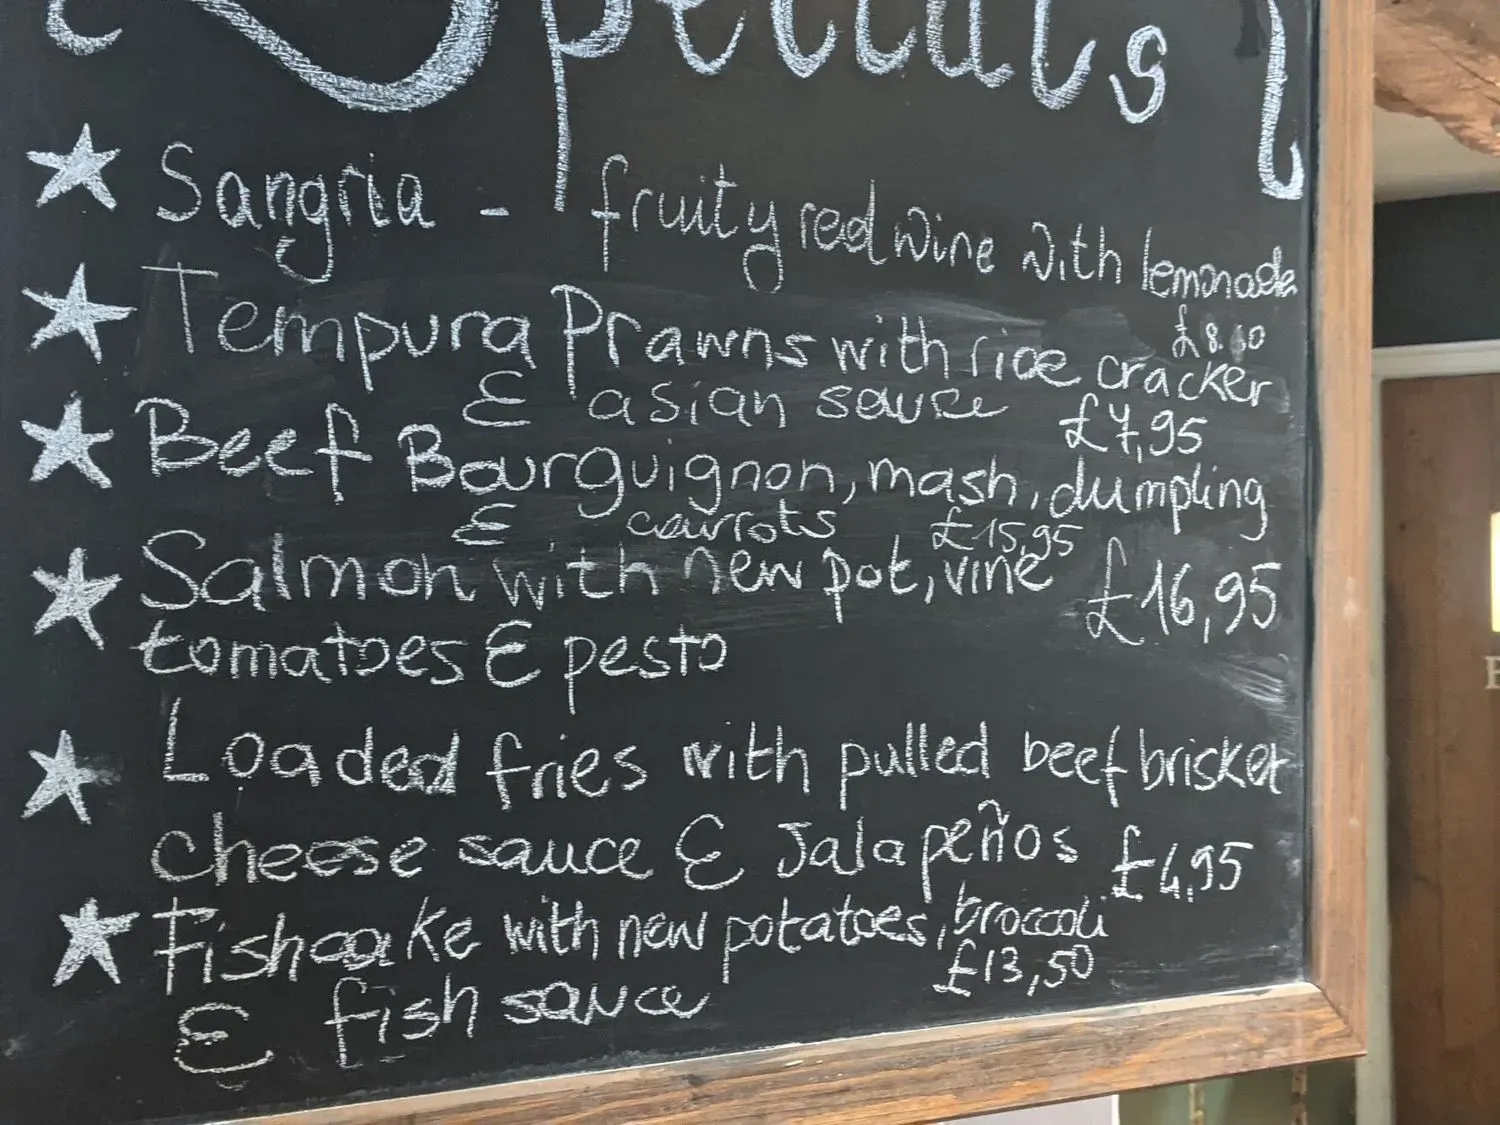 Specials
Sangria - fruity red wine with lemonade
£8.10
Tempura Prawns with rice cracker
& asian sauce £7,95
Beef Bourguignon, mash, dumpling
& carrots £15,95
Salmon with new pot, vine £16,95
tomatoes & pesto
Loaded fries with pulled beef brisket
cheese sauce & Jalapeños £4,95
Fishcake with new potatoes, broccoli
£13,50
& fish sauce